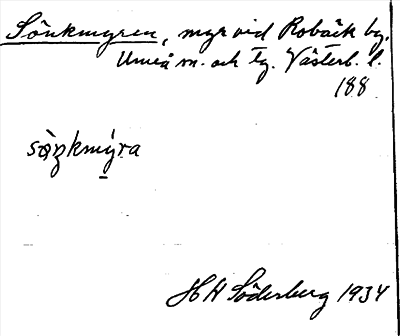 Sönkmyren, myr vid Robäck by,
Umeå sn. och tg. Västerb. l.
188
H H Söderberg 1934